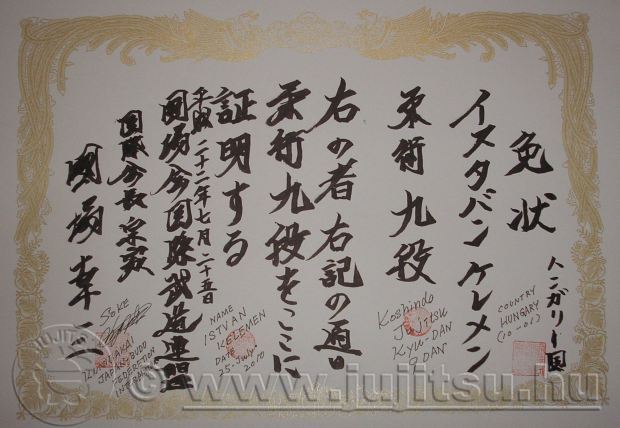 免状
ハンガリー国
COUNTRY
HUNGARY
(10-01)
イスタバン ケレメン
柔術 九段
Koshindo
Jujitsu
KYU-DAN
9 DAN
右の者右記の通り
柔術九段をここに
証明する
NAME
ISTVAN
KELEMEN
DATE
25-July
2010
平成二十二年七月二十五日
國場会国際武道連盟
国際会長 宗家
國場 幸
SOKE
KUNIBAKAI
JAPAN BUDO
FEDERATION
INTERNATIONAL
© www.jujitsu.hu
JUJITSU